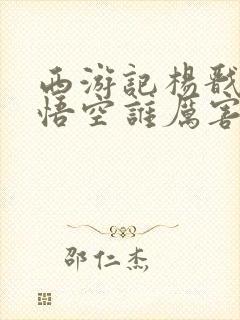 西游記楊戩
悟空誰厲害
邵仁杰